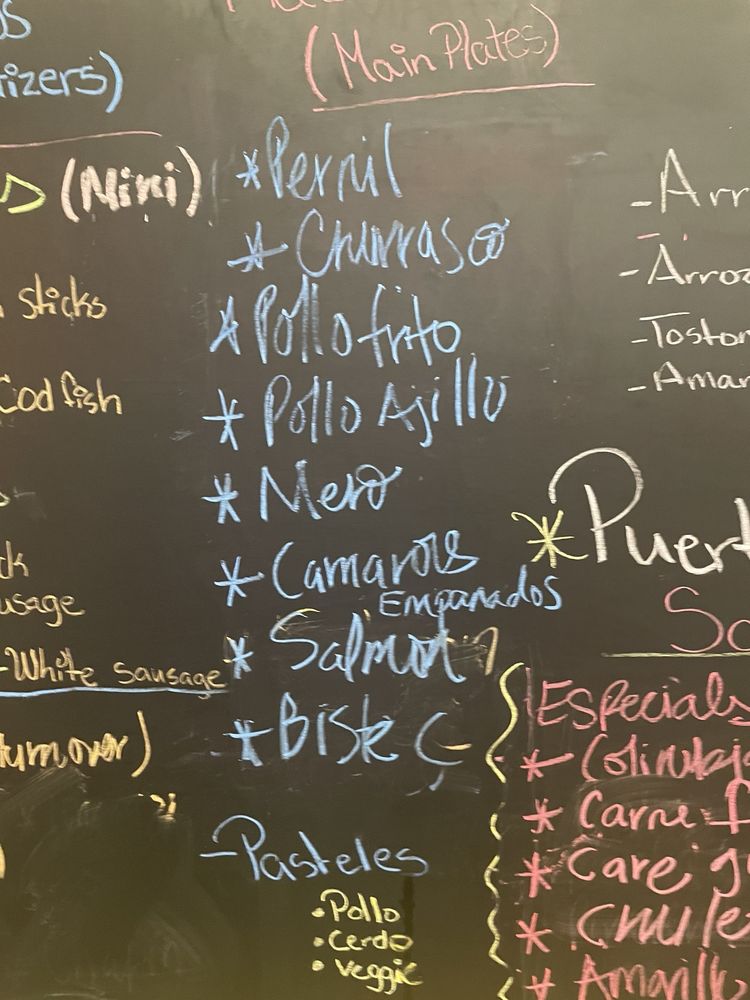 tizers)
(Main Plates)
(Mini)
sticks
Cod fish
usage
-White sausage
turnover)
*Pernil
*Churrasco
*Pollo frito
*Pollo Ajillo
*Mero
*Camarones
Empanados
*Salmon
*Bistec
-Pasteles
•Pollo
•Cerdo
•Veggie
-Arr
-Arroz
-Toston
-Amar
*Puert
So
Especials
*Carne f
*Care gu
*Chule
*Amarillo